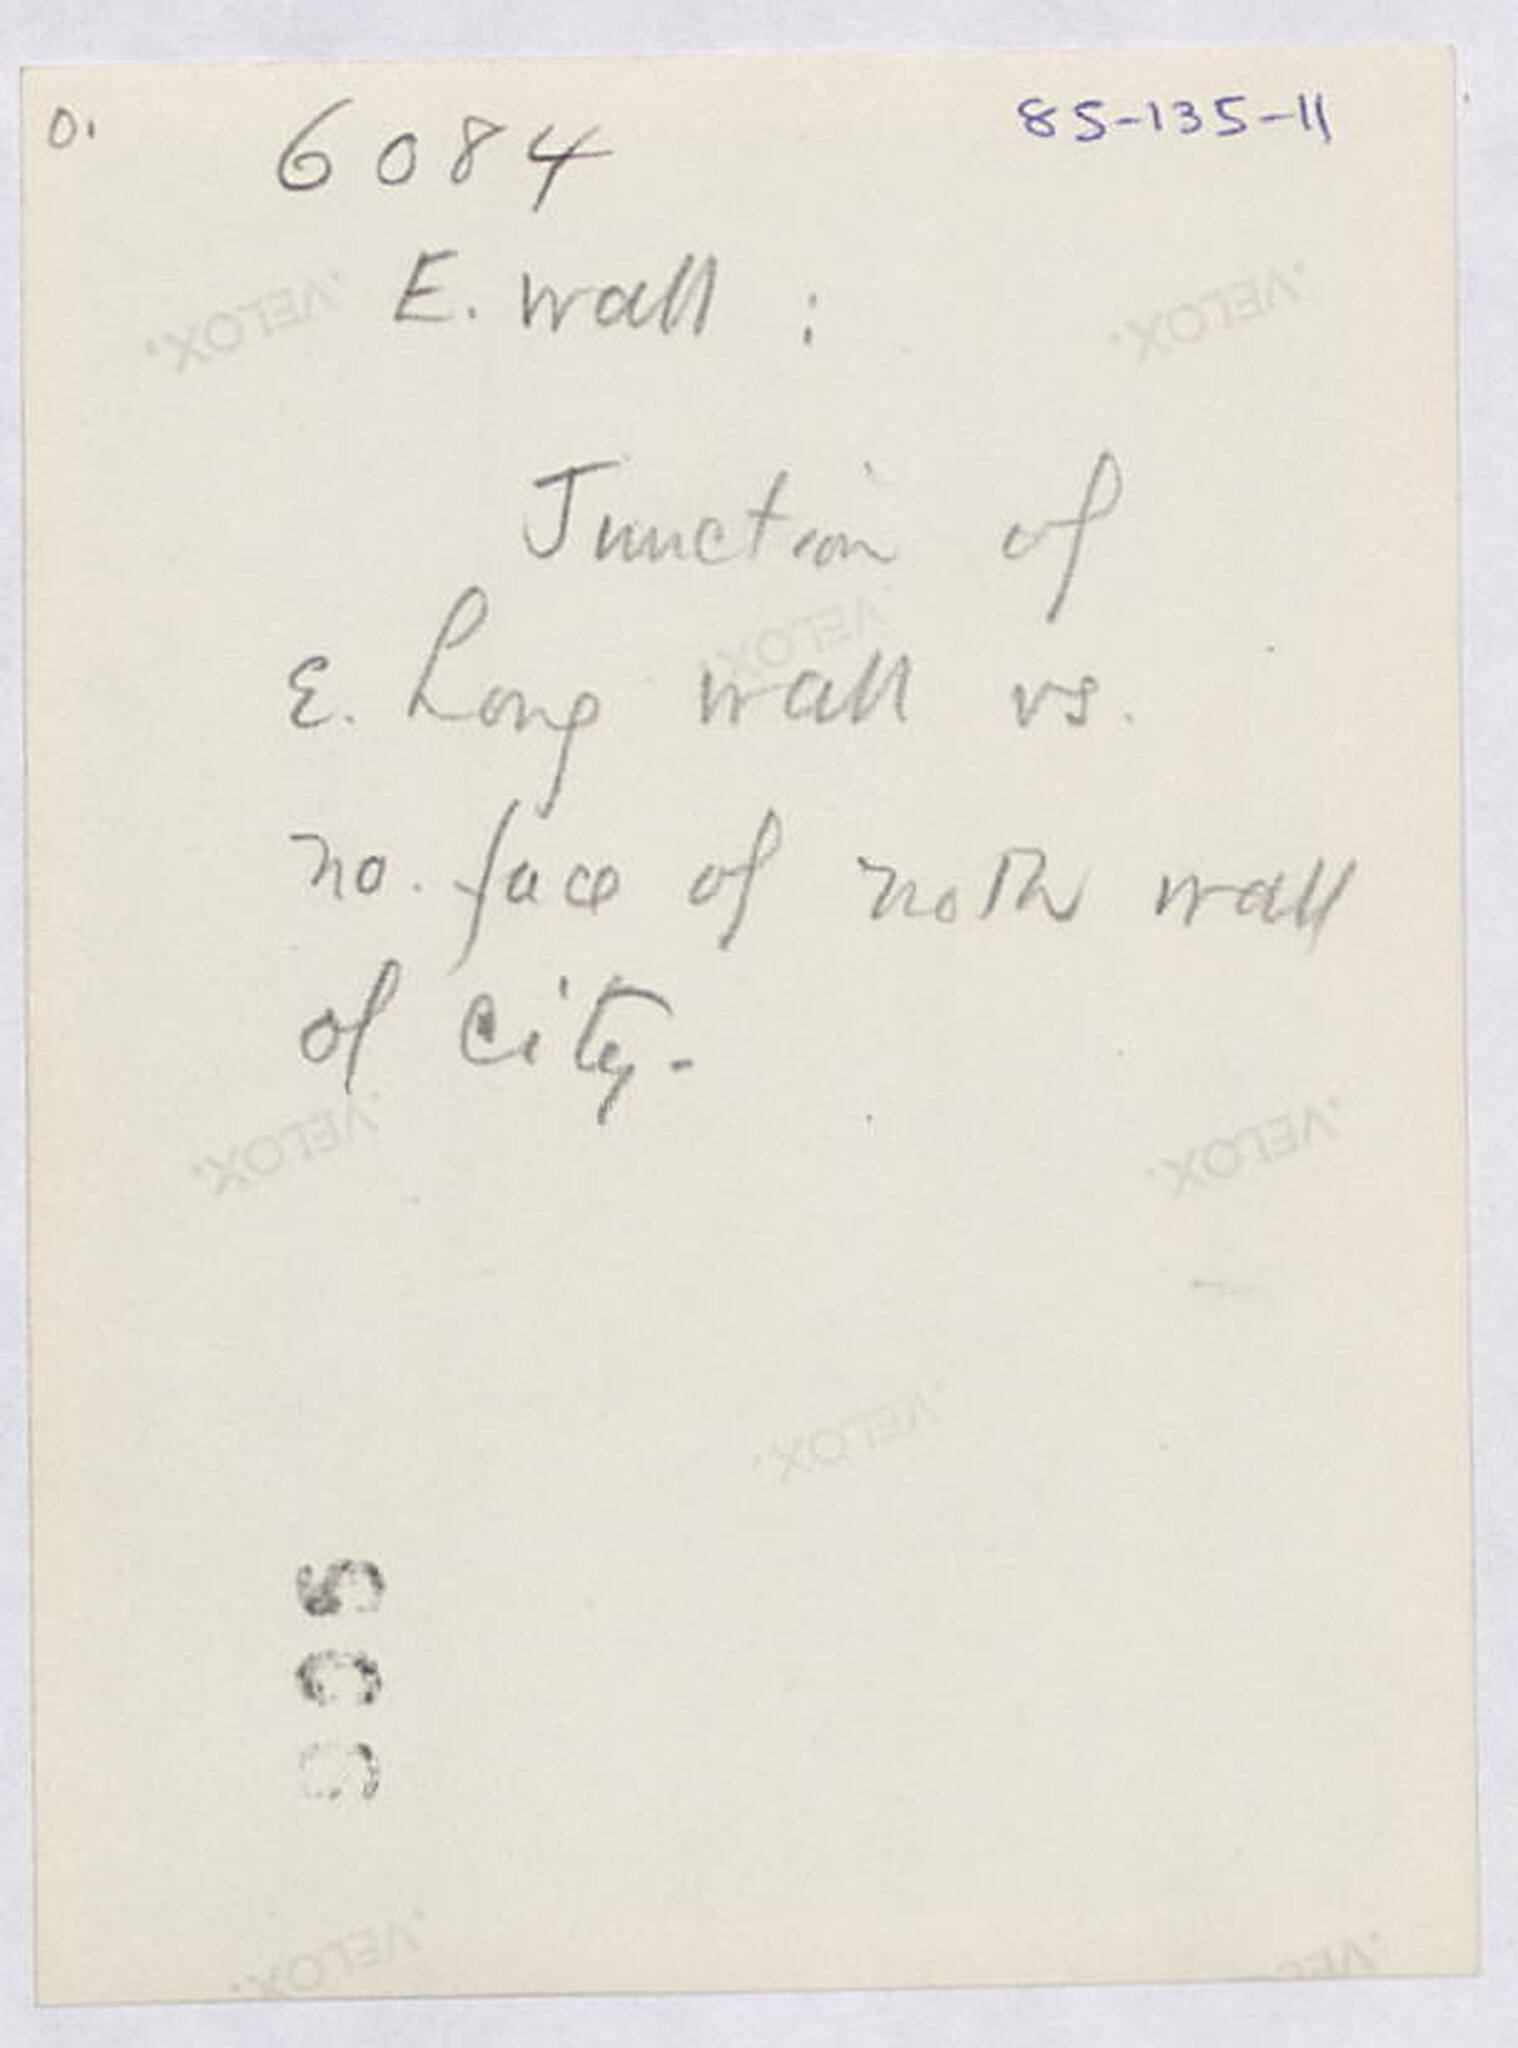 0.
6084
85-135-11
E. wall :
Junction of
E. Long wall vs.
no. face of noth wall
of city.
VELOX
VELOX
VELOX
VELOX
VELOX
VELOX
VELOX